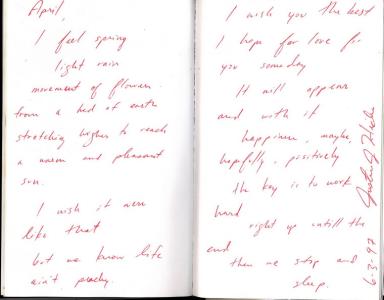 April,
I feel spring
light rain
movement of flowers
from a bed of earth
stretching higher to reach
a warm and pleasant
sun.
I wish it were
like that
but we know life
ain't peachy.
I wish you the best
I hope for love for
you someday
It will appear
and with it
happiness, maybe
hopefully, positively
the key is to work
hard
right up untill the
end
then we stop and
sleep.
6-3-97